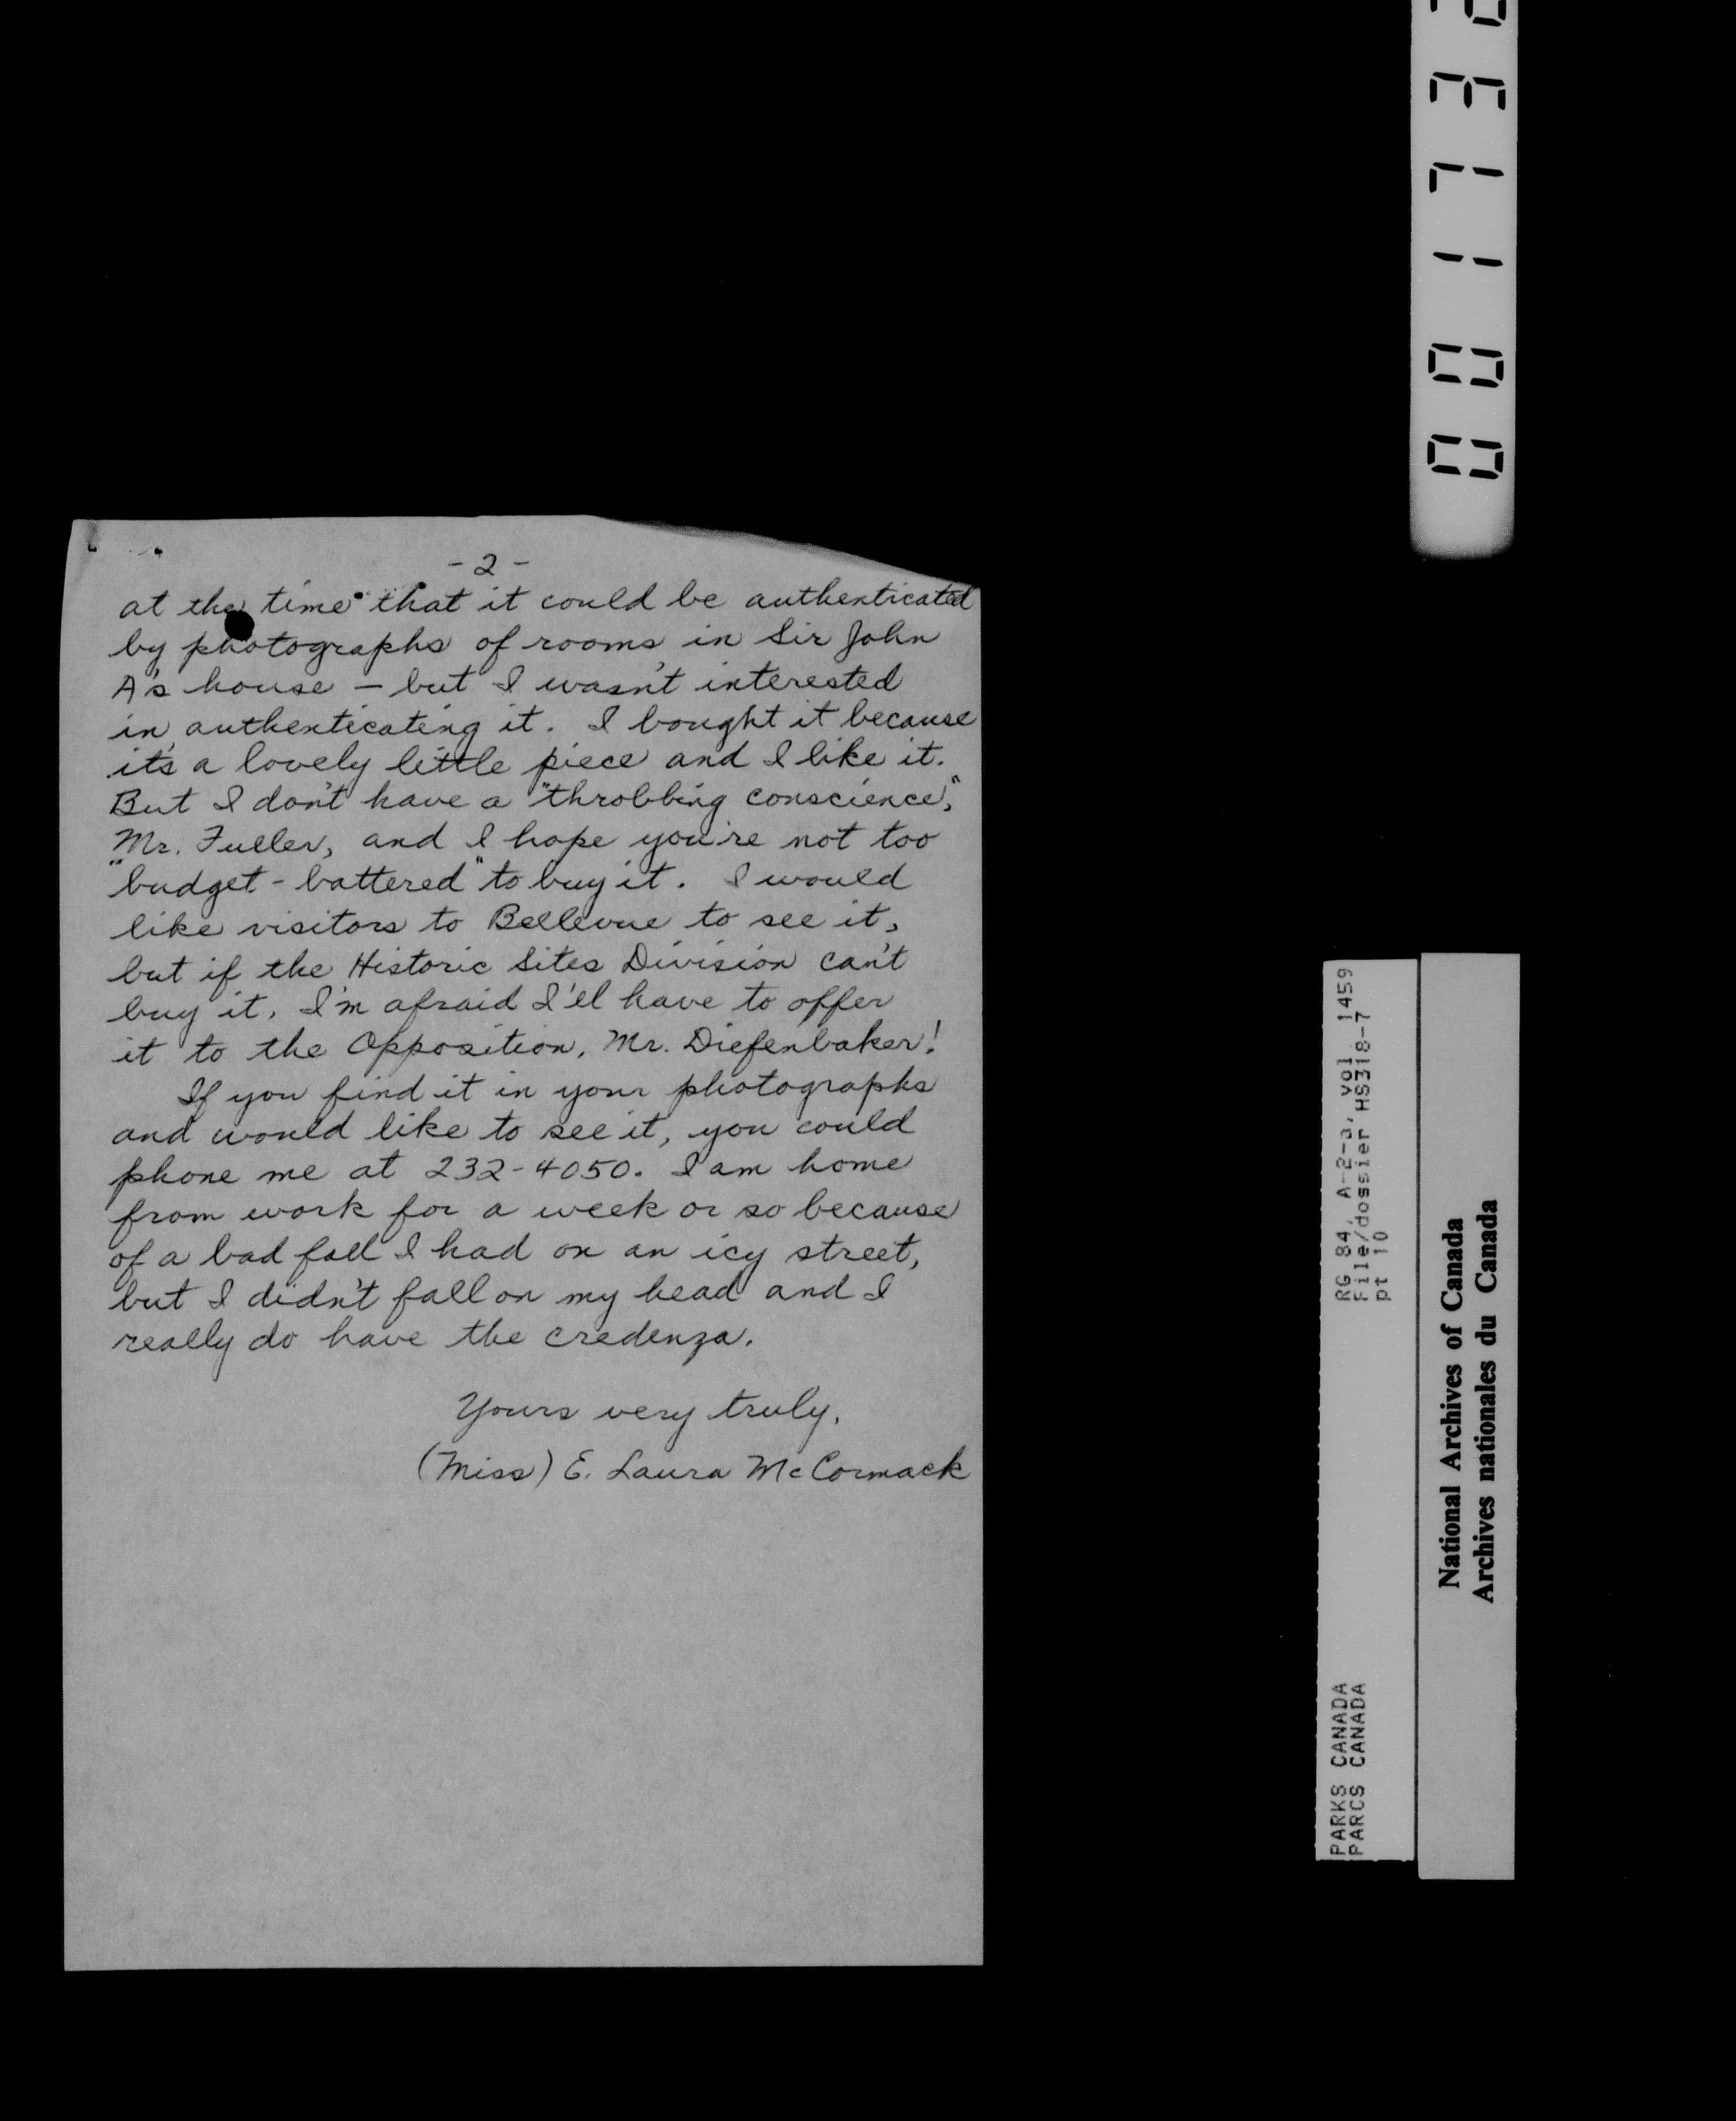 -2-
at the time that it could be authenticated
by photographs of rooms in Sir John
A's house – but I wasn't interested
in authenticating it. I bought it because
it's a lovely little piece and I like it.
But I don't have a "throbbing conscience",
Mr. Fuller, and I hope you're not too
"budget-battered" to buy it. I would
like visitors to Bellevue to see it,
but if the Historic Sites Division can't
buy it, I'm afraid I'll have to offer
it to the Opposition, Mr. Diefenbaker!
If you find it in your photographs
and would like to see it, you could
phone me at 232-4050. I am home
from work for a week or so because
of a bad fall I had on an icy street,
but I didn't fall on my head and I
really do have the credenza.
Yours very truly,
(Miss) E. Laura McCormack
RG 84, A-2-3, vol 1459
File/dossier HS318-7
pt 10
PARKS CANADA
PARCS CANADA
National Archives of Canada
Archives nationales du Canada